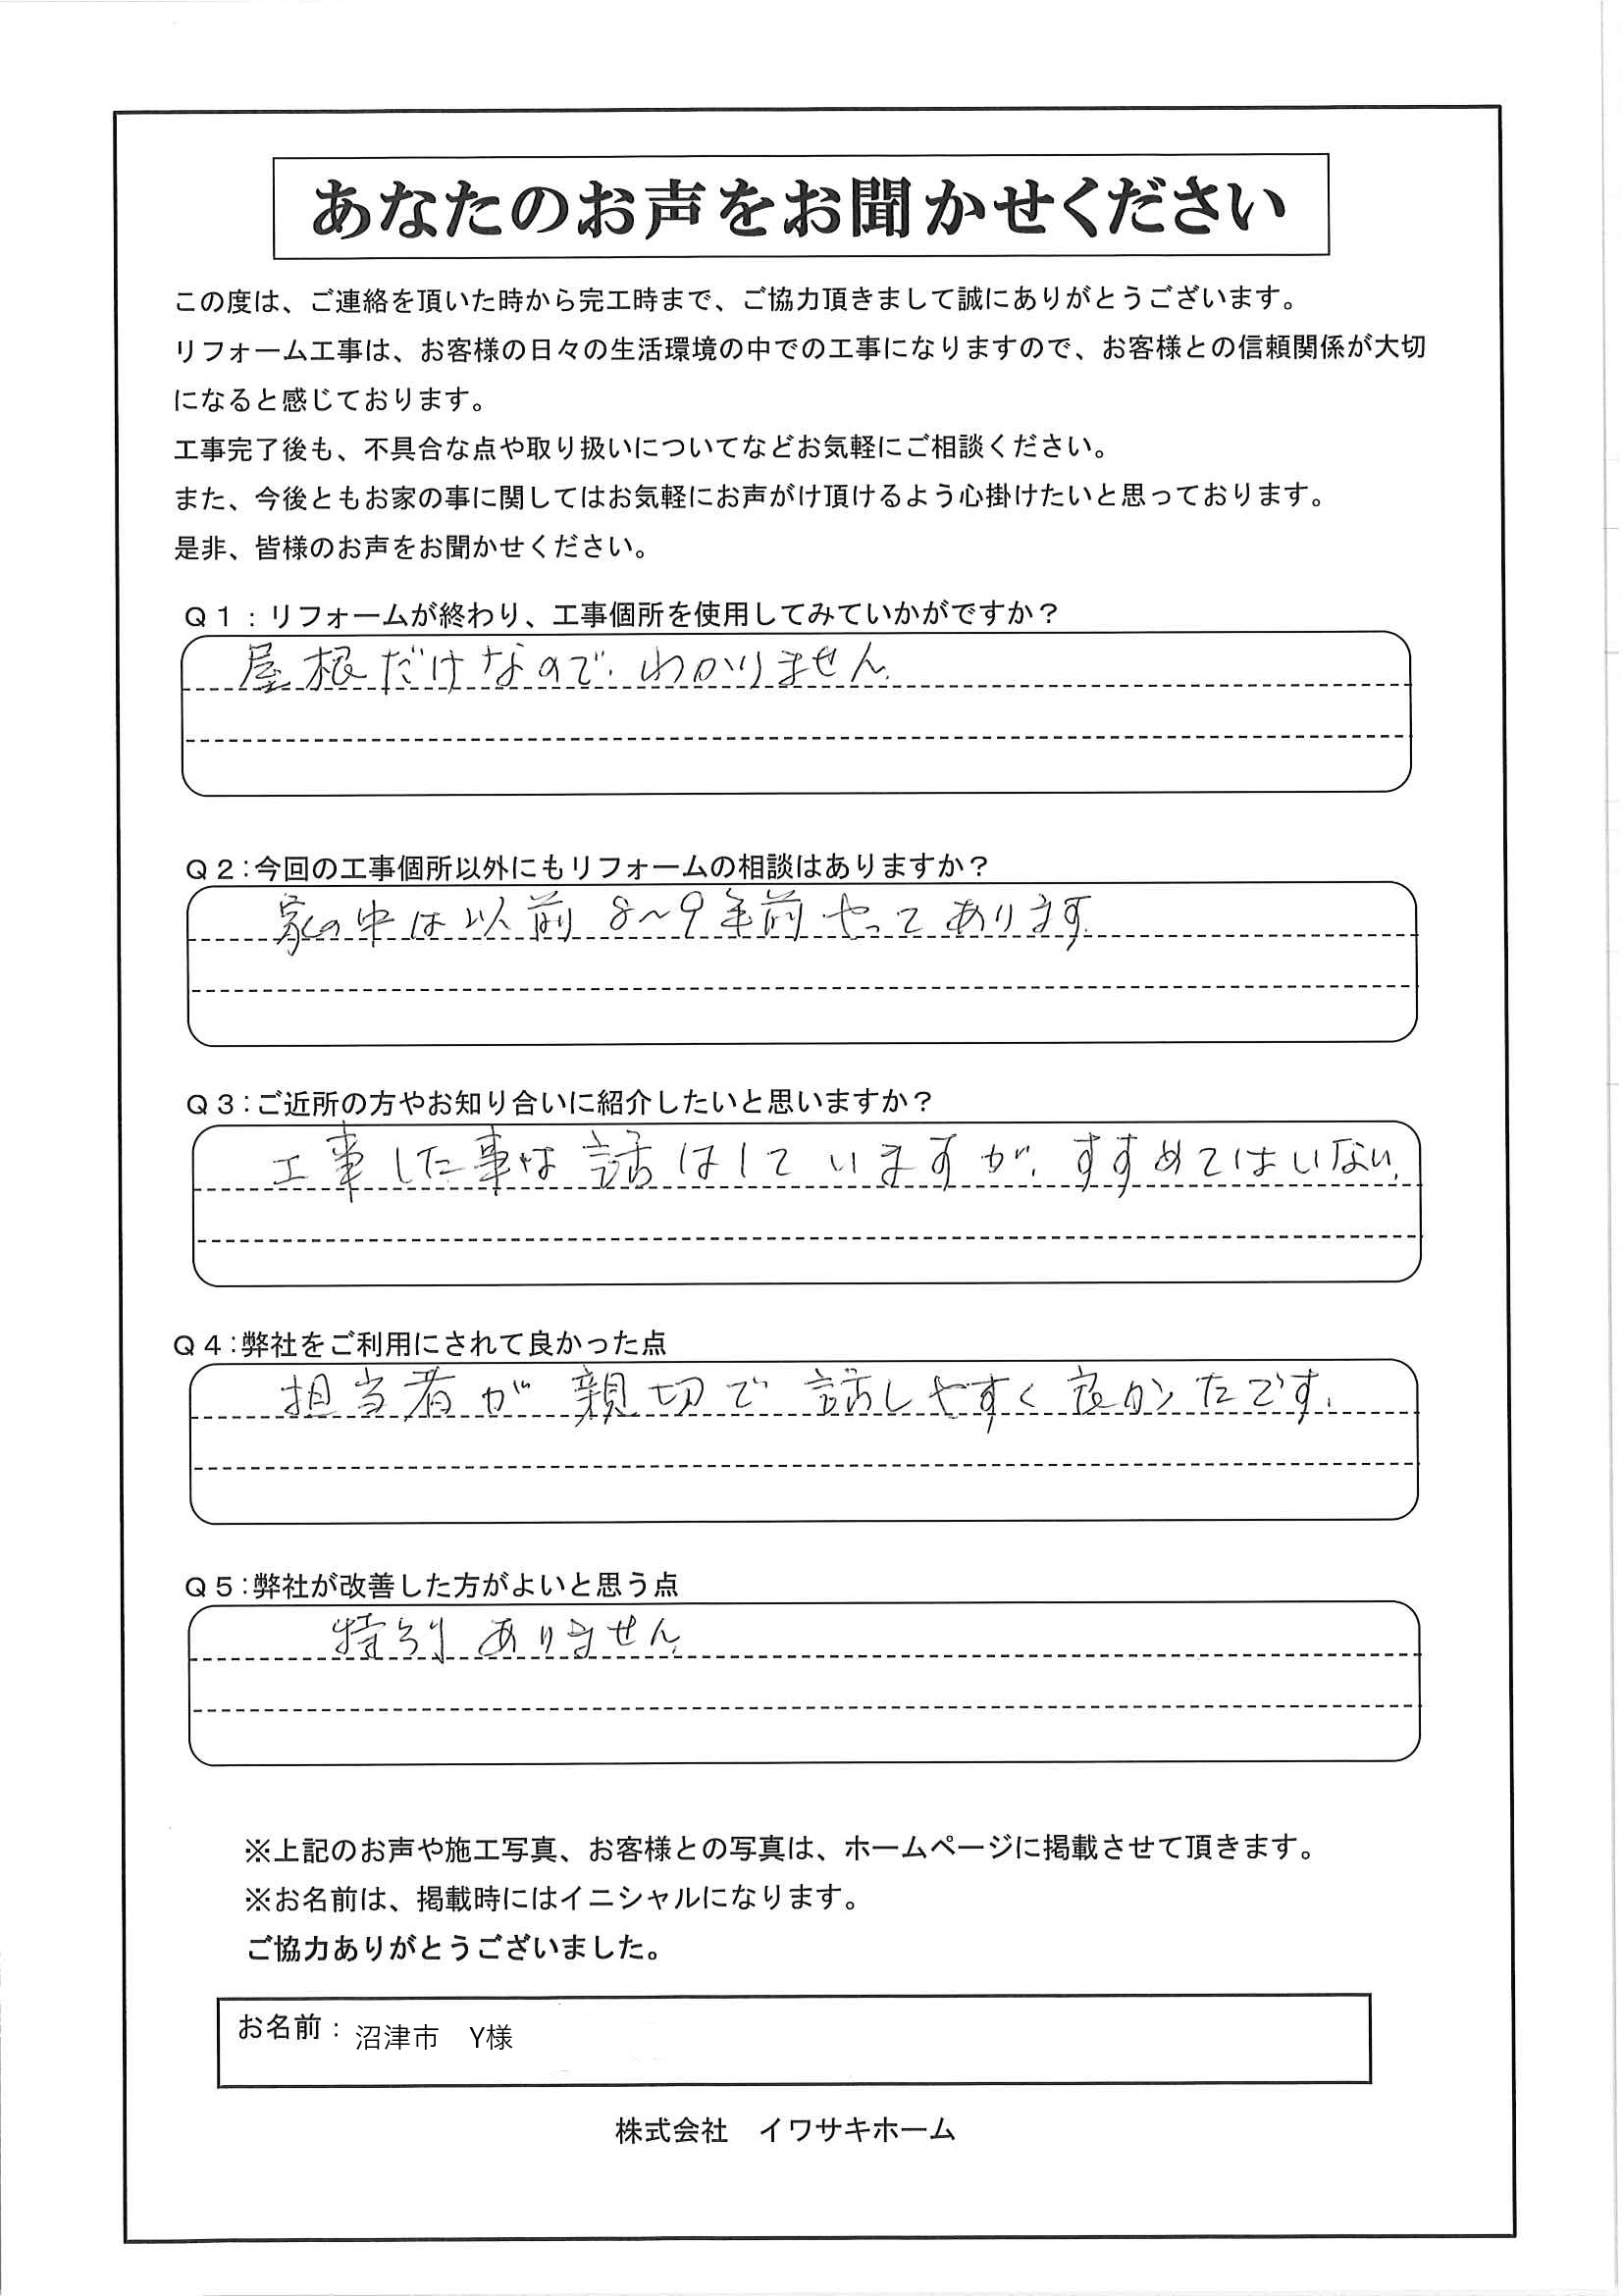 あなたのお声をお聞かせください
この度は、ご連絡を頂いた時から完工時まで、ご協力頂きまして誠にありがとうございます。
リフォーム工事は、お客様の日々の生活環境の中での工事になりますので、お客様との信頼関係が大切
になると感じております。
工事完了後も、不具合な点や取り扱いについてなどお気軽にご相談ください。
また、今後ともお家の事に関してはお気軽にお声がけ頂けるよう心掛けたいと思っております。
是非、皆様のお声をお聞かせください。
Ｑ１：リフォームが終わり、工事個所を使用してみていかがですか？
屋根だけなので、わかりません。
Ｑ２：今回の工事個所以外にもリフォームの相談はありますか？
家の中は以前 8～9年前やってあります。
Ｑ３：ご近所の方やお知り合いに紹介したいと思いますか？
工事した事は話はしていますが、すすめてはいない。
Ｑ４：弊社をご利用にされて良かった点
担当者が親切で話しやすく良かったです。
Ｑ５：弊社が改善した方がよいと思う点
特別ありません。
※上記のお声や施工写真、お客様との写真は、ホームページに掲載させて頂きます。
※お名前は、掲載時にはイニシャルになります。
ご協力ありがとうございました。
お名前：沼津市　Y様
株式会社　イワサキホーム